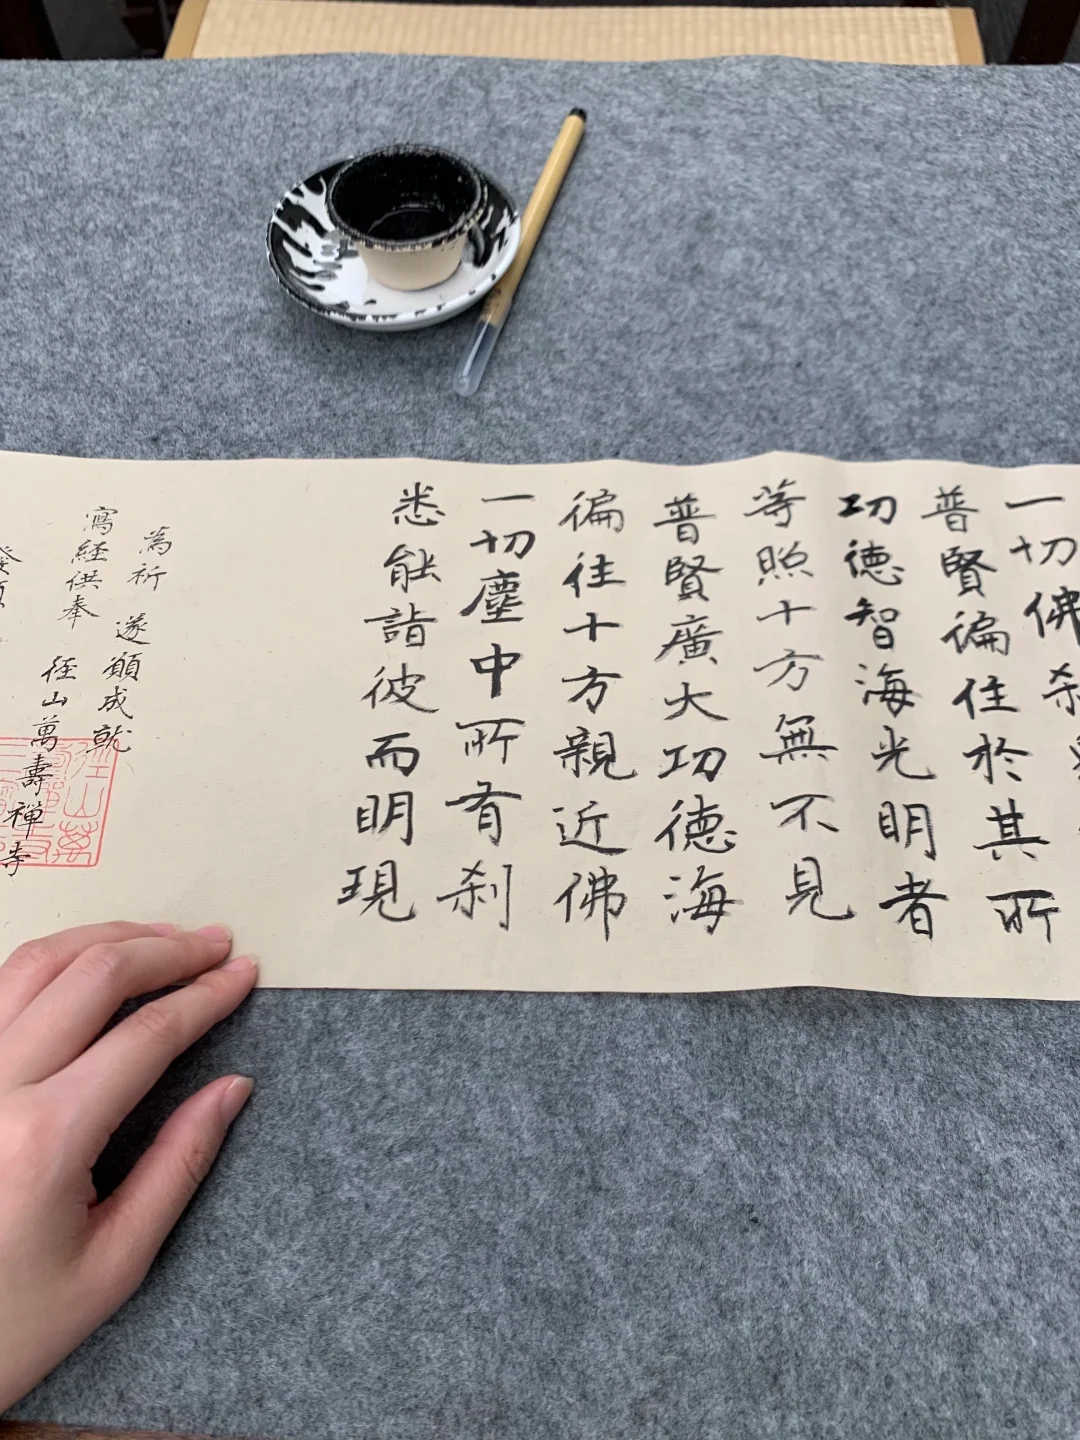 一切佛刹
普賢徧住於其所
功德智海光明者
等照十方無不見
普賢廣大功德海
徧往十方親近佛
一切塵中所有刹
悉能詣彼而明現
為祈 遂願成就
寫經供奉 徑山萬壽禪寺
發願
徑山萬